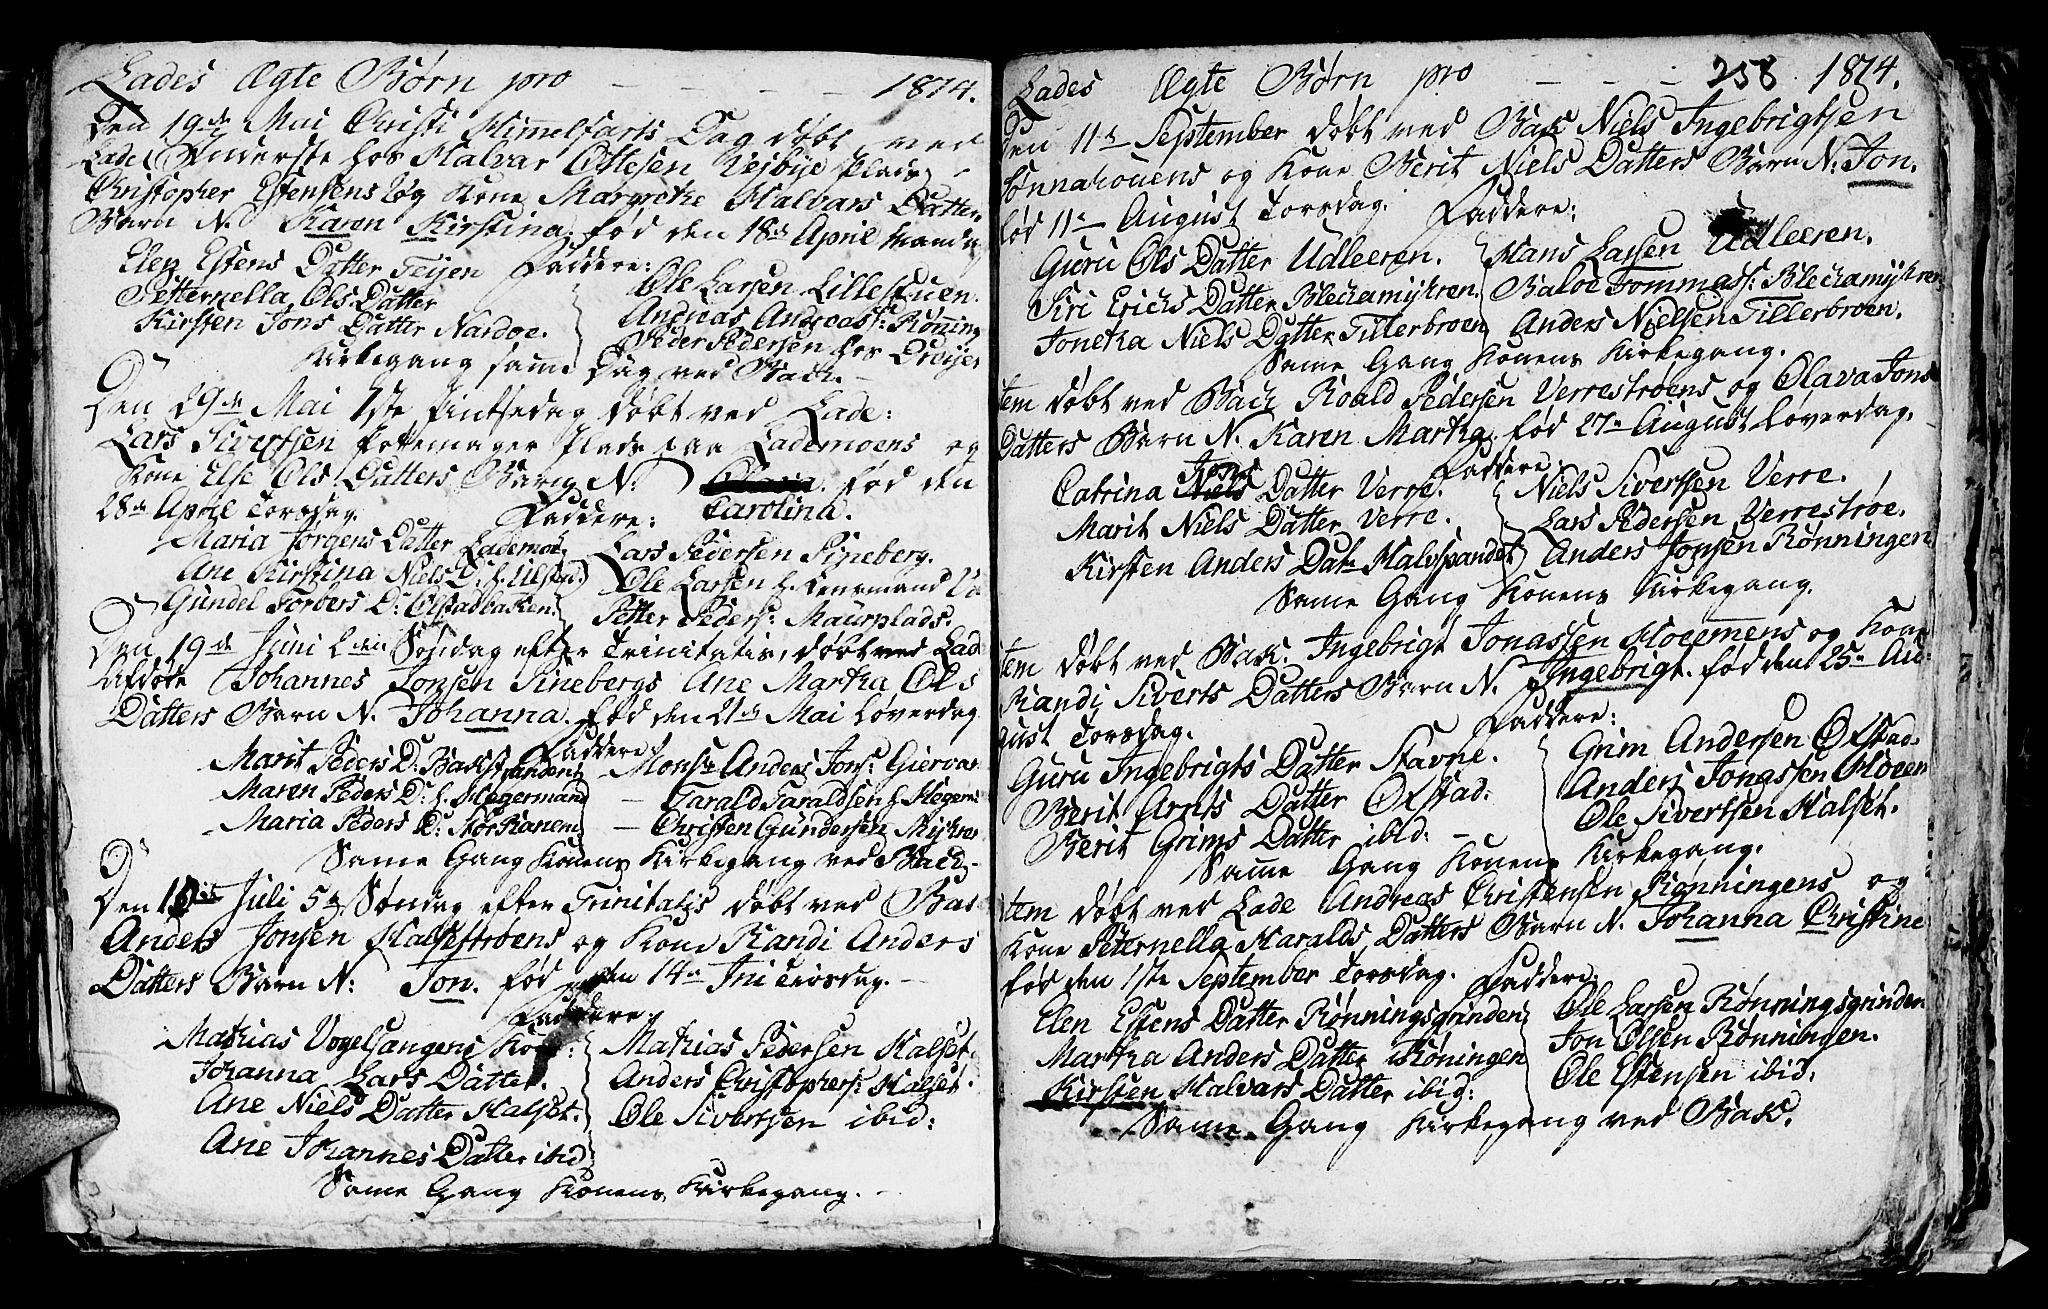 Lades Ægte Børn pro - - - - 1814.
Den 19de Mai Christi Himmelfarts Dag døbt ved
Lade Inderste hos Halvar Ottesen Vejbye Plads
Christopher Estensens og Kone Margrethe Halvars Datters
Barn N. Karen Kirstina. fød den 18de April Mandag
Faddere:
Elen Estens Datter Teijen
Petternella Ols Datter
Kirsten Jons Datter Nardoe.
Ole Larsen Lillestuen.
Andreas Andreass: Röning
Peder Pedersen hos
Kirkegang samme Dag ved Back.
Den 29de Mai 1ste Pintsedag døbt ved Lade:
Lars Sivertsen Pottemager Plads paa Lademoens og
Kone Else Ols Datters Barn N: Carolina. fød den
28de April Torsdag.
Faddere:
Maria Jørgens Datter Lademoe
Ane Kirstina Niels D:
Gundel Torbers D: Ølstadbaken.
Lars Pedersen Pineberg.
Ole Larsen h. Lensmand
Petter Peders: Maurplads.
Den 19de Juni 2den Søndag efter Trinitatis, døbt ved Lade
Afdøde Johannes Jonsen Pinebergs Ane Martha Ols
Datters Barn N. Johanna. fød den 21de Mai Løverdag
Faddere:
Marit Peders D: Bakstrandens
Maren Peders D: h. Hegermand
Maria Peders D:
Monsr Anders Jons: Giervan
- Tarald Taraldsen h. Hegerm:
- Christen Gundersen Myhren
Same Gang Konens Kirkegang ved Back -
Den Juli 5te Søndag efter Trinitatis døbt ved Bak
Anders Jonsen Halsetstrøens og Kone Randi Anders
Datters Barn N: Jon. fød den 14de Juni Tirsdag. -
Faddere:
Mathias Vogelsangens Kone:
Johanna Lars Datter.
Ane Niels Datter Halset.
Ane Johannes Datter ibid
Mathias Pedersen Halset.
Anders Christophers: Halset.
Ole Sivertsen ibid:
Same Gang Konens Kirkegang. -
Lades Ægte Børn pro - - - 258 1814.
Den 11te September døbt ved Bak Niels Ingebrigtsen
Sønnahouens og Kone Berit Niels Datters Barn N: Jon.
fød 11te August Torsdag. Faddere:
Guru Ols Datter Udleeren.
Siri Erichs Datter Blechamÿhren.
Joneta Niels Datter Tillerbroen
Hans Larsen Udleeren.
Baloe Tommass: Blechamÿhren
Anders Nielsen Tillerbroen.
Same Gang Konens Kirkegang.
Item døbt ved Bach Roald Pedersen Verrestrøens og Olava Jons
Datters Barn N. Karen Martha. fød 27de August Løverdag.
Faddere:
Catrina Jons Datter Verre.
Marit Niels Datter Verre.
Kirsten Anders Datr Halvspandet
Niels Sivertsen Verre.
Lars Pedersen Verrestrøe.
Anders Jonsen Rønningen
Same Gang Konens Kirkegang.
Item døbt ved Bak. Ingebrigt Jonassen Moeemens og Kone
Randi Siverts Datters Barn N. Ingebrigt. fød den 25de Au-
gust Torsdag. Faddere:
Guru Ingebrigts Datter Stavne.
Berit Arnts Datter Ølstad.
Berit Grims Datter ibid:
Grim Andersen Ølstad.
Anders Jonassen Moeen
Ole Sivertsen Halset.
Same Gang Konens Kirkegang.
Item døbt ved Lade Andreas Christensen Rønningens og
Kone Peternella Haralds Datters Barn N. Johanna Christine
fød den 1ste September Torsdag. Faddere:
Elen Estens Datter Rønningsgrinden
Martha Anders Datter Röningen
Kirsten Halvars Datter ibid:
Ole Larsen Rønningsgrinden
Jon Olsen Rønningen.
Ole Estensen ibid.
Same Gang Kirkegang ved Bak.